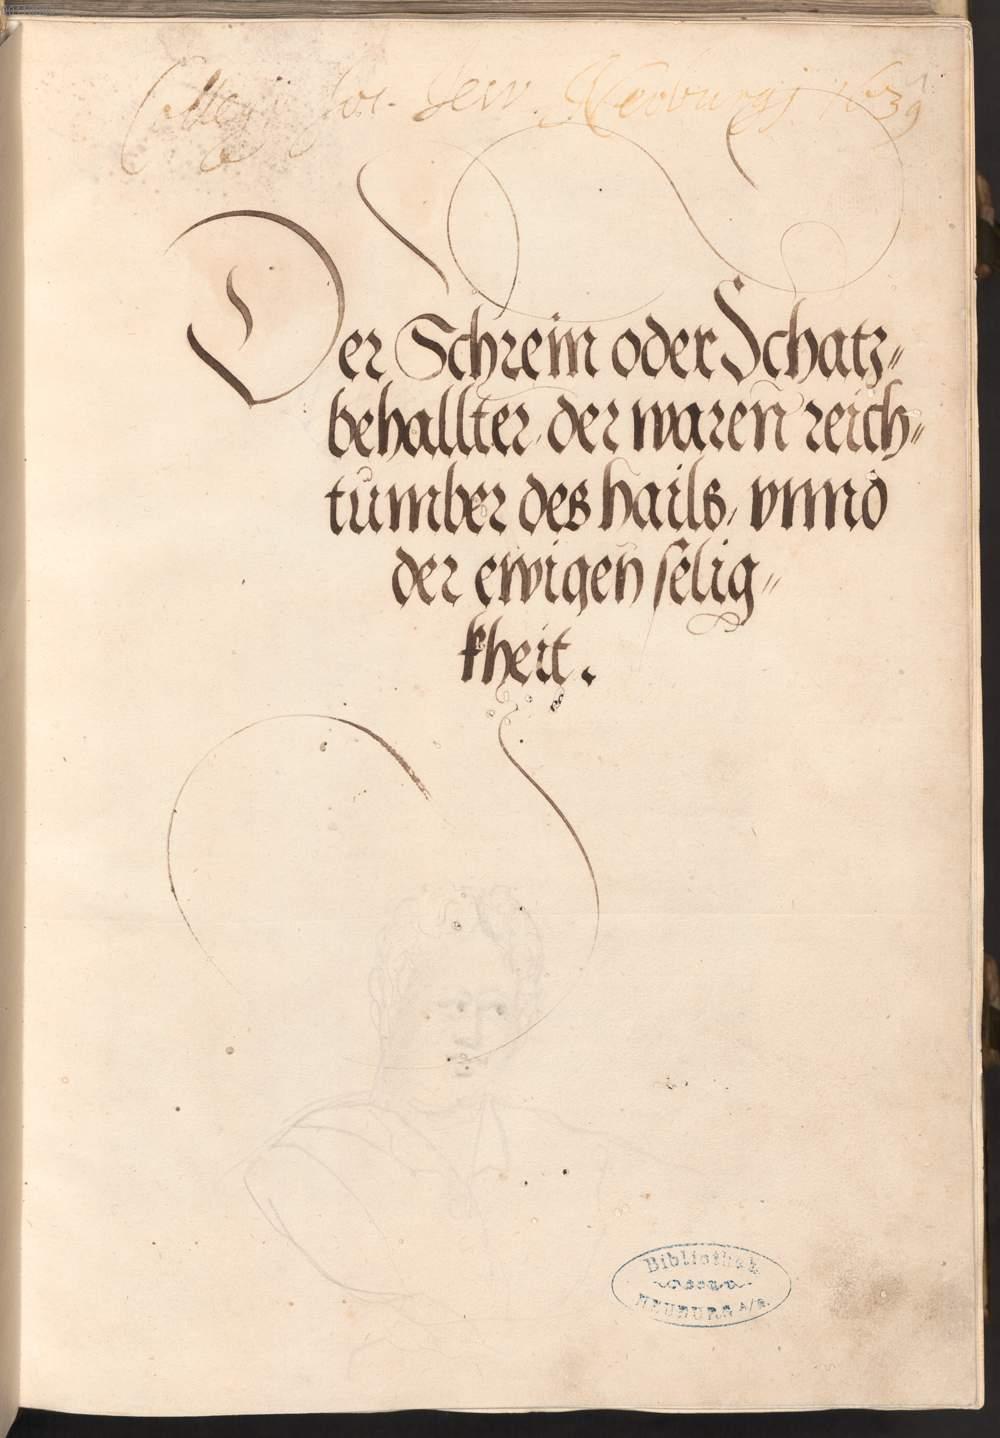 Collegij Soc. Jesu. Neoburgi 1639
Der Schrein oder Schatz-
behallter, der waren reich-
tumber des hails, vnnd
der ewigen sëlig-
kheit.
Bibliothek
NEUBURG a/D.